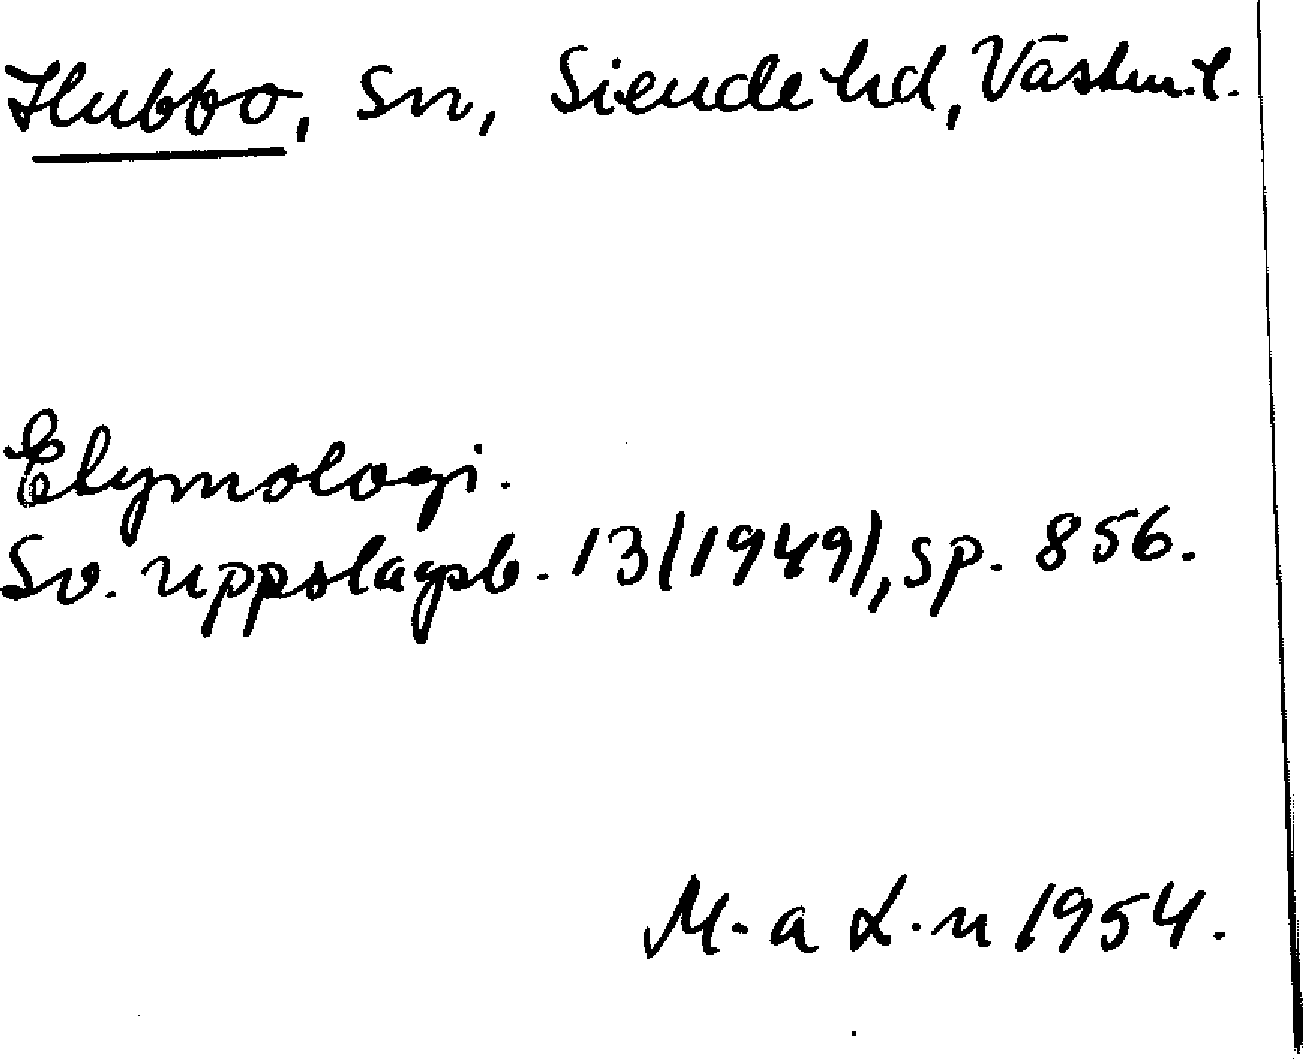 Hubbo, Sn, Siende hd, Västm. l.
Etymologi.
Sv. uppslagsb. 13 (1949), sp. 856.
M-a L-n 1954.